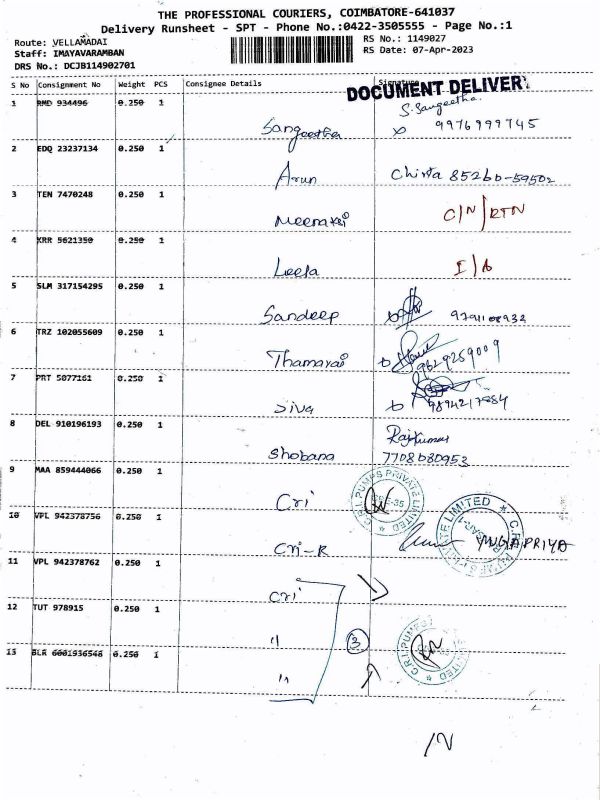 THE PROFESSIONAL COURIERS, COIMBATORE-641037
Delivery Runsheet - SPT - Phone No.:0422-3505555 - Page No.:1
Route: VELLAMADAI RS No.: 1149027
Staff: IMAYAVARAMBAN RS Date: 07-Apr-2023
DRS No.: DCJB114902701
S No Consignment No Weight PCS Consignee Details Signature
DOCUMENT DELIVER
1 RMD 934496 0.250 1
Sangeetha S. Sangeetha. 9976999745
2 EDQ 23237134 0.250 1
Arun
3 TEN 7470248 0.250 1
Meenakai C/N/RTN
4 KRR 5621350 0.250 1
Leela I/A
5 SLM 317154295 0.250 1
Sandeep
6 TRZ 102055609 0.250 1
Thamarai 9629259009
7 PRT 5077161 0.250 1
Siva
8 DEL 910196193 0.250 1
Shobana Rajkumar
7708080953
9 MAA 859444066 0.250 1
Cri C.R.I. PUMPS PRIVATE LIMITED
10 VPL 942378756 0.250 1
Cri-R
11 VPL 942378762 0.250 1
Cri
12 TUT 978915 0.250 1
" 3
13 BLR 6001936548 0.250 1
"